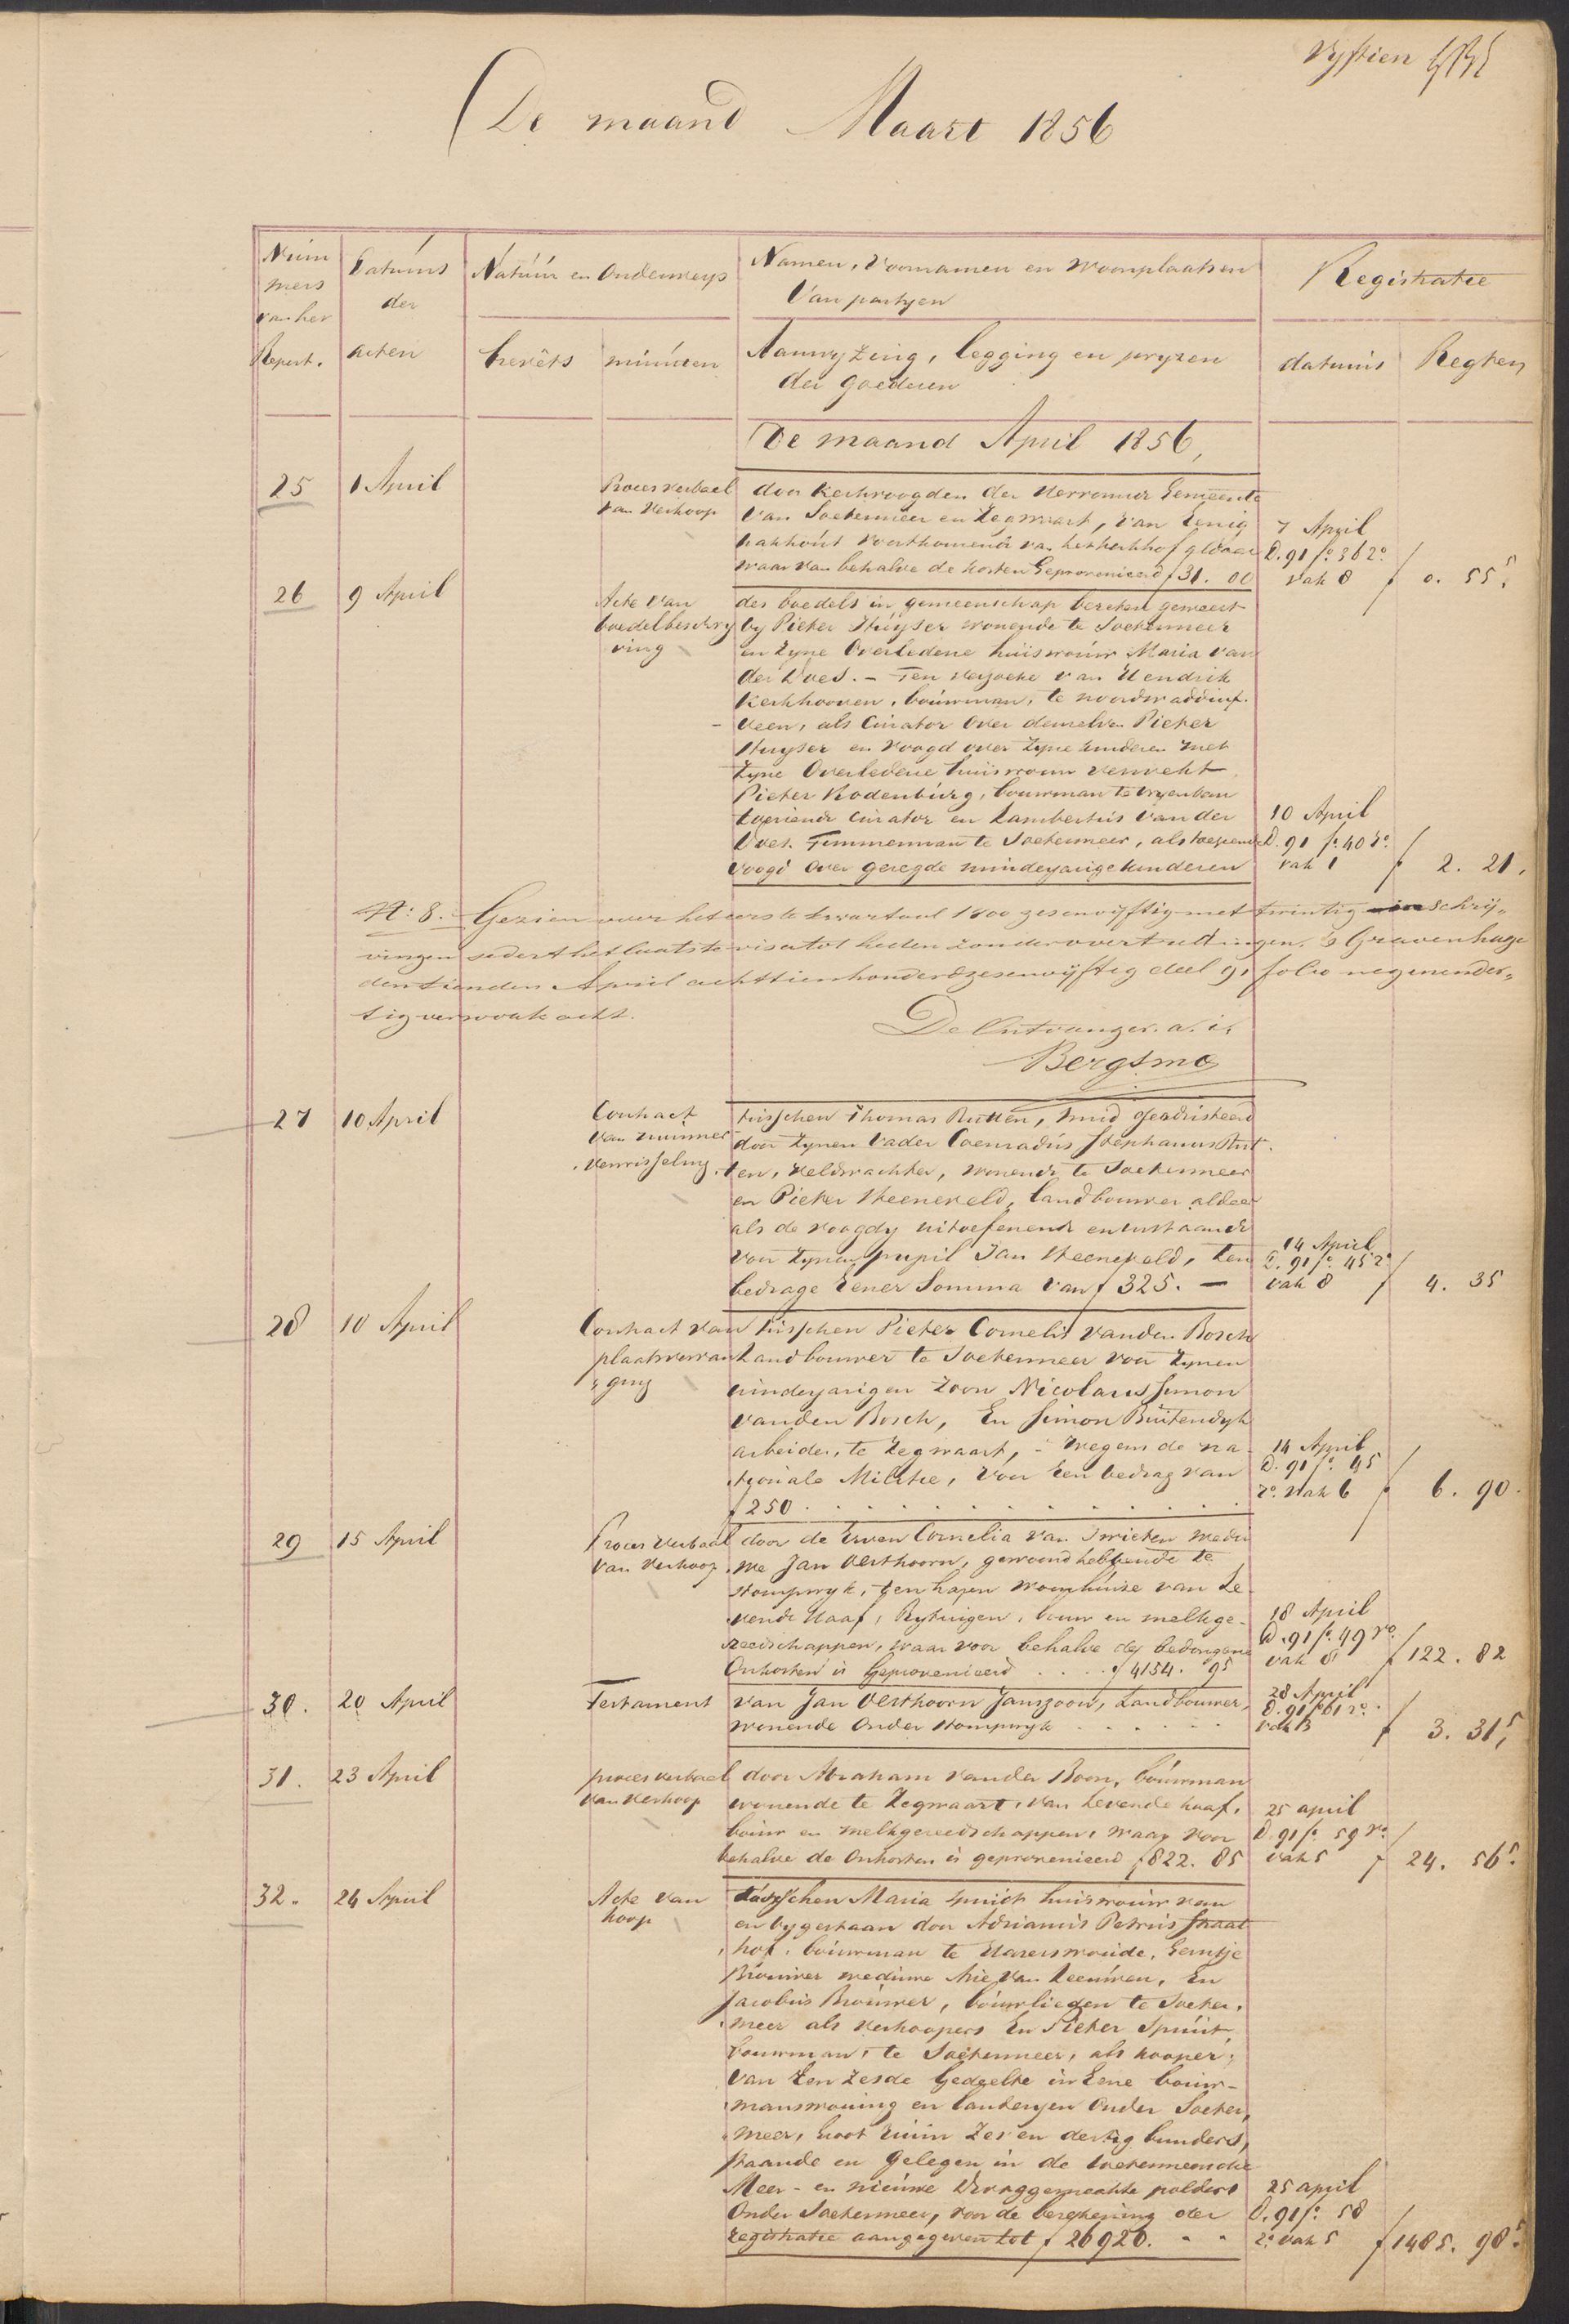 Vyftien
De maand Maart 1856
Num
mers
van het
Repert.
Datums
der
acten
Natuur en Onderwerp
brevêts
minuten
Namen, Voornamen en Woonplaatsen
Van partyen
Aanwyzing, legging en pryzen
der goederen
Registratie
datums
Regten
De maand April 1856,
25
1 April
Proces verbaal
van Verkoop
door Kerkvoogden der Hervormde Gemeente
van Soetermeer en Zegwaart, van Eenig
hakhout voortkomende van het kerkhof aldaar
waar van behalve de kosten Geprovenieerd f 31. 00
7 April
D. 91 fo. 36 2o.
vak 8
f 0. 55 5.
26
9 April
Acte van
boedelbeschry
ving
des boedels in gemeenschap bezeten geweest
by Pieter Huyser wonende te Soetermeer
en Zyne Overledene huisvrouw Maria van
der Does. – Ten verzoeke van Hendrik
Kerkhoven, bouwman, te noordwaddinx.
veen, als Curator Over denzelven Pieter
Huyser en Voogd over Zyne kinderen met
Zyne Overledene huisvrouw verwekt
Pieter Rodenburg, bouwman te
toeziende Curator en Lambertus van der
Does. Timmerman te Soetermeer, als toeziende
voogd Over gezegde minderjarige kinderen
10 April
D. 91 fo. 40 ro.
vak 1
f 2. 21.
No: 8. Gezien over het eerste kwartaal 1800 zesenvyftig met twintig inschrij„
vingen sedert het laatste visa tot heden zonder overtredingen. 's Gravenhage
den tienden April achttienhonderd zesenvyftig deel 91 folio negenender„
tig verso vak acht.
De Ontvanger. a. i.
Bergsma
27
10 April
Contract
van nummer
verwisseling.
tusschen Thomas Rutten, smid geadsisteerd
door Zynen Vader Coenradus Stephanus Rut
ten, Veldwachter, wonende te Soetermeer
en Pieter Steeneveld, landbouwer aldaar
als de voogdy uitoefenende en instaande
voor Zynen pupil Jan Steeneveld, ten
bedrage Eener Somma van f 325. —
14 April
D. 91 fo. 45 2o
vak 8
f 4. 35
28
10 April
Contract van
plaatsvervan
ging
tusschen Pieter Cornelis vanden Bosch
Landbouwer te Soetermeer voor Zynen
minderjarigen Zoon Nicolaus Simon
vanden Bosch, En Simon Buitendyk
arbeider, te Zegwaart, – wegens de na
tionale Militie, Voor Een bedrag van
f 250 . . . . . . . . . . . .
14 April
D. 91 fo. 45
ro. Vak 6
f 6. 90.
29
15 April
Proces Verbaal
van Verkoop
door de Erven Cornelia van Swieten wedu
we Jan Olsthoorn, gewoond hebbende te
Stompwyk, ten haren woonhuise van Le
vende Haaf, Rytuigen, bouw en melkge-
reedschappen, waar voor behalve de bedongene
Onkosten is Geprovenieerd . . . . f 4154. 95
18 April
D. 91 fo. 49 vo.
vak 8
f 122. 82
30.
20 April
Testament
van Jan Olsthoorn Janszoon, Landbouwer,
wonende Onder Stompwyk . . . . . .
28 April
D. 91 fo 61 ro.
vak 3
f 3. 31 5,
31.
23 April
proces verbaal
van Verkoop
door Abraham vander Boon, bouwman
wonende te Zegwaart, van Levende haaf,
bouw en melkgereedschappen, waar voor
behalve de Onkosten is geprovenieerd f 822. 85
25 april
D. 91 fo 59 ro.
vak 5
f 24. 56 5.
32.
24 April
Acte van
koop
tusschen Maria Spruit huisvrouw van
en bygestaan door Adrianus Petrus Straat
hof, bouwman te Hazerswoude, Gerritje
Brouwer weduwe Arie van Leeuwen, En
Jacobus Brouwer, bouwlieden te Soeter.
meer als Verkoopers En Pieter Spruit
bouwman, te Soetermeer, als kooper,
van Een zesde Gedeelte in Eene bouw-
manswoning en landeryen Onder Soeter,
meer, Groot ruim Zes en dertig bunders,
staande en Gelegen in de Soetermeersche
Meer - en nieuwe Drooggemaakte polders
Onder Soetermeer, voor de berekening der
registratie aangegeven tot f 26920. " "
25 april
D. 91 fo. 58
2o. vak 5
f 1485. 98 5.